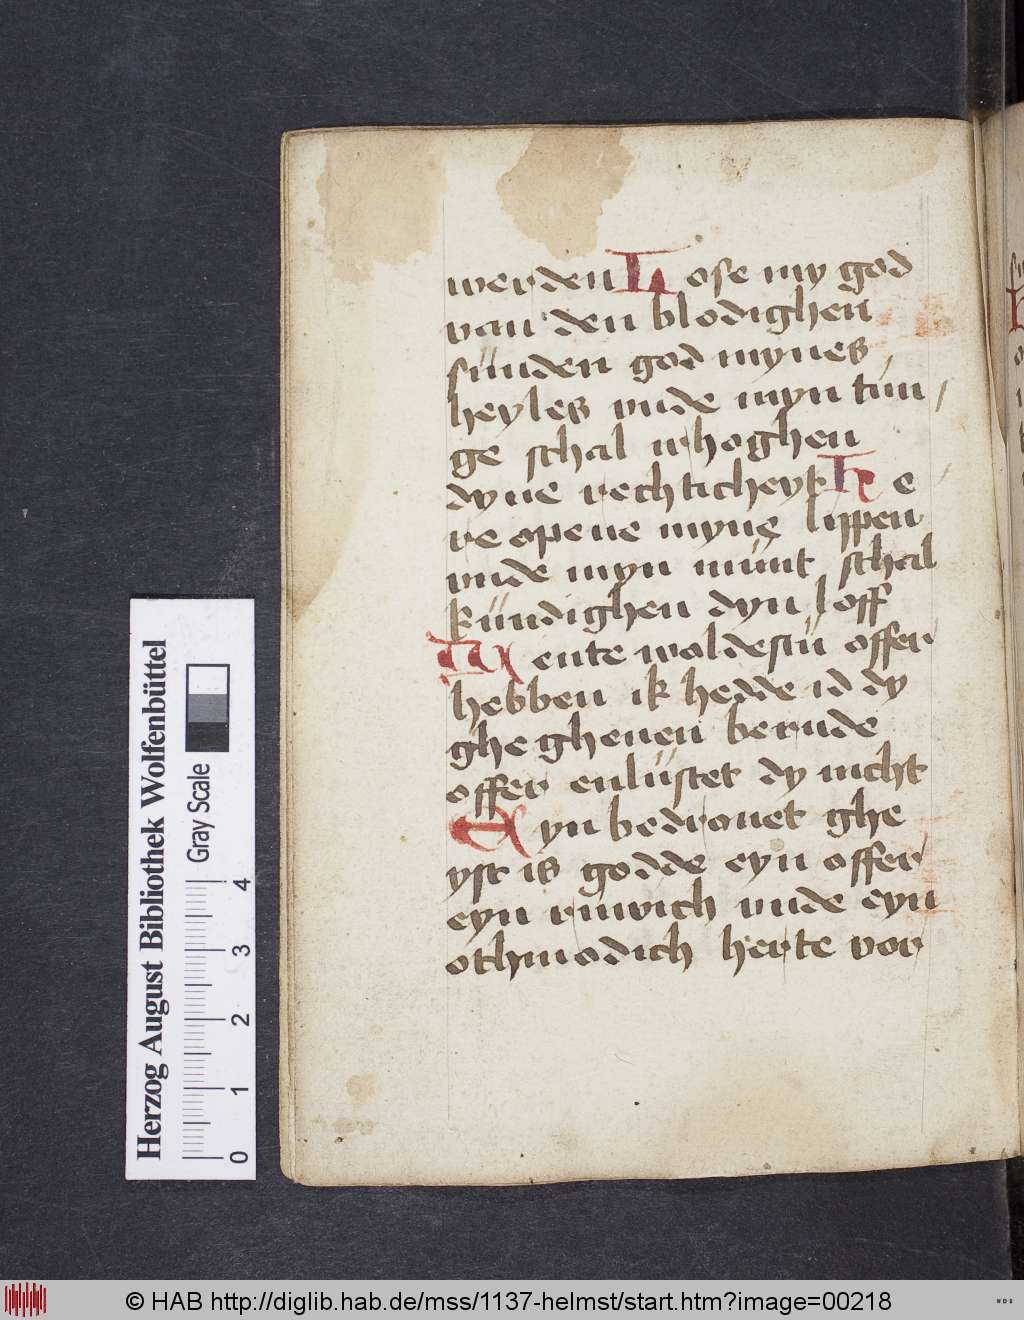 werden Lose my god
van den blodighen
sünden god mynes
heyles vnde myn tun
ge schal vrhoghen
dyne rechticheyt He
re opene myne lippen
vnde myn münt schal
kündighen dyn loff
Wente woldestü offer
hebben ik hedde id dy
ghegheuen bernde
offer enlüstet dy nicht
Eyn bedrouet ghe
yst is godde eyn offer
eyn ruwich vnde eyn
othmodich herte vor
Herzog August Bibliothek Wolfenbüttel
Gray Scale
0 1 2 3 4
© HAB http://diglib.hab.de/mss/1137-helmst/start.htm?image=00218